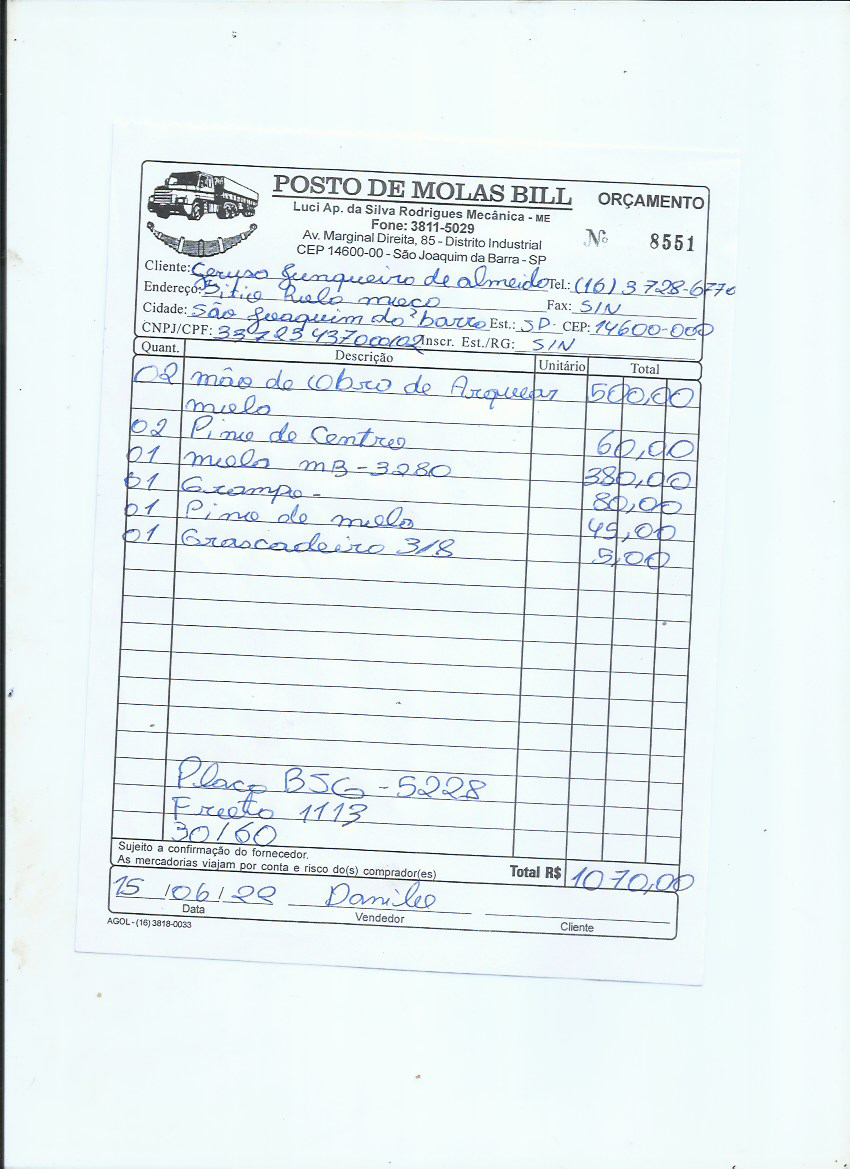 POSTO DE MOLAS BILL
ORÇAMENTO
Luci Ap. da Silva Rodrigues Mecânica - ME
Fone: 3811-5029
Av. Marginal Direita, 85 - Distrito Industrial
CEP 14600-00 - São Joaquim da Barra - SP
Nº 8551
Cliente: Junqueira de almeida Tel.: (16) 3728-6770
Endereço: Sitio Fax: S/N
Cidade: São Joaquim da barra Est.: SP. CEP: 14600-000
CNPJ/CPF: Inscr. Est./RG: S/N
Quant. Descrição Unitário Total
02 mão de Obra de Arquear 500,00
mola
02 Pino de Centro 60,00
01 mola MB-3280 380,00
01 Grampo - 80,00
01 Pino de mola 45,00
01 Graxadeira 3/8 5,00
Placa BJG-5228
1113
30/60
Sujeito a confirmação do fornecedor.
As mercadorias viajam por conta e risco do(s) comprador(es)
Total R$ 1070,00
15 /06/ 22 Danilo
Data Vendedor Cliente
AGOL - (16) 3818-0033